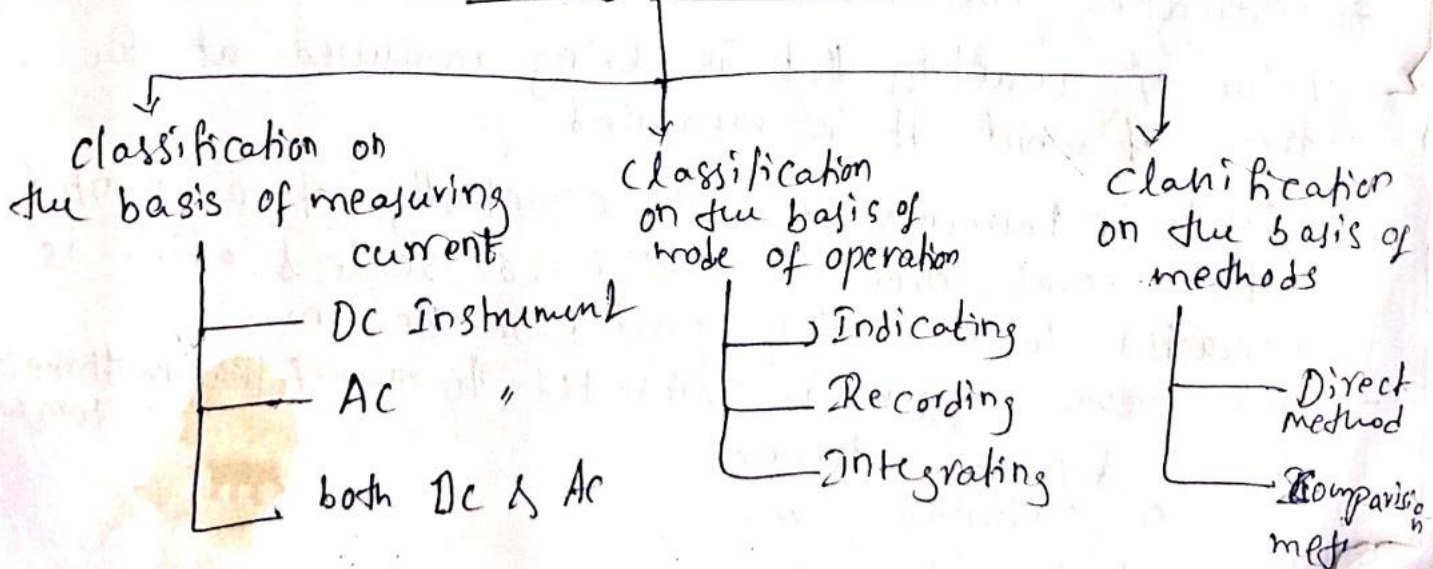 classification on
the basis of measuring
current
DC Instrument
AC "
both DC & AC
Classification
on the basis of
mode of operation
Indicating
Recording
Integrating
Classification
on the basis of
methods
Direct
method
Comparision